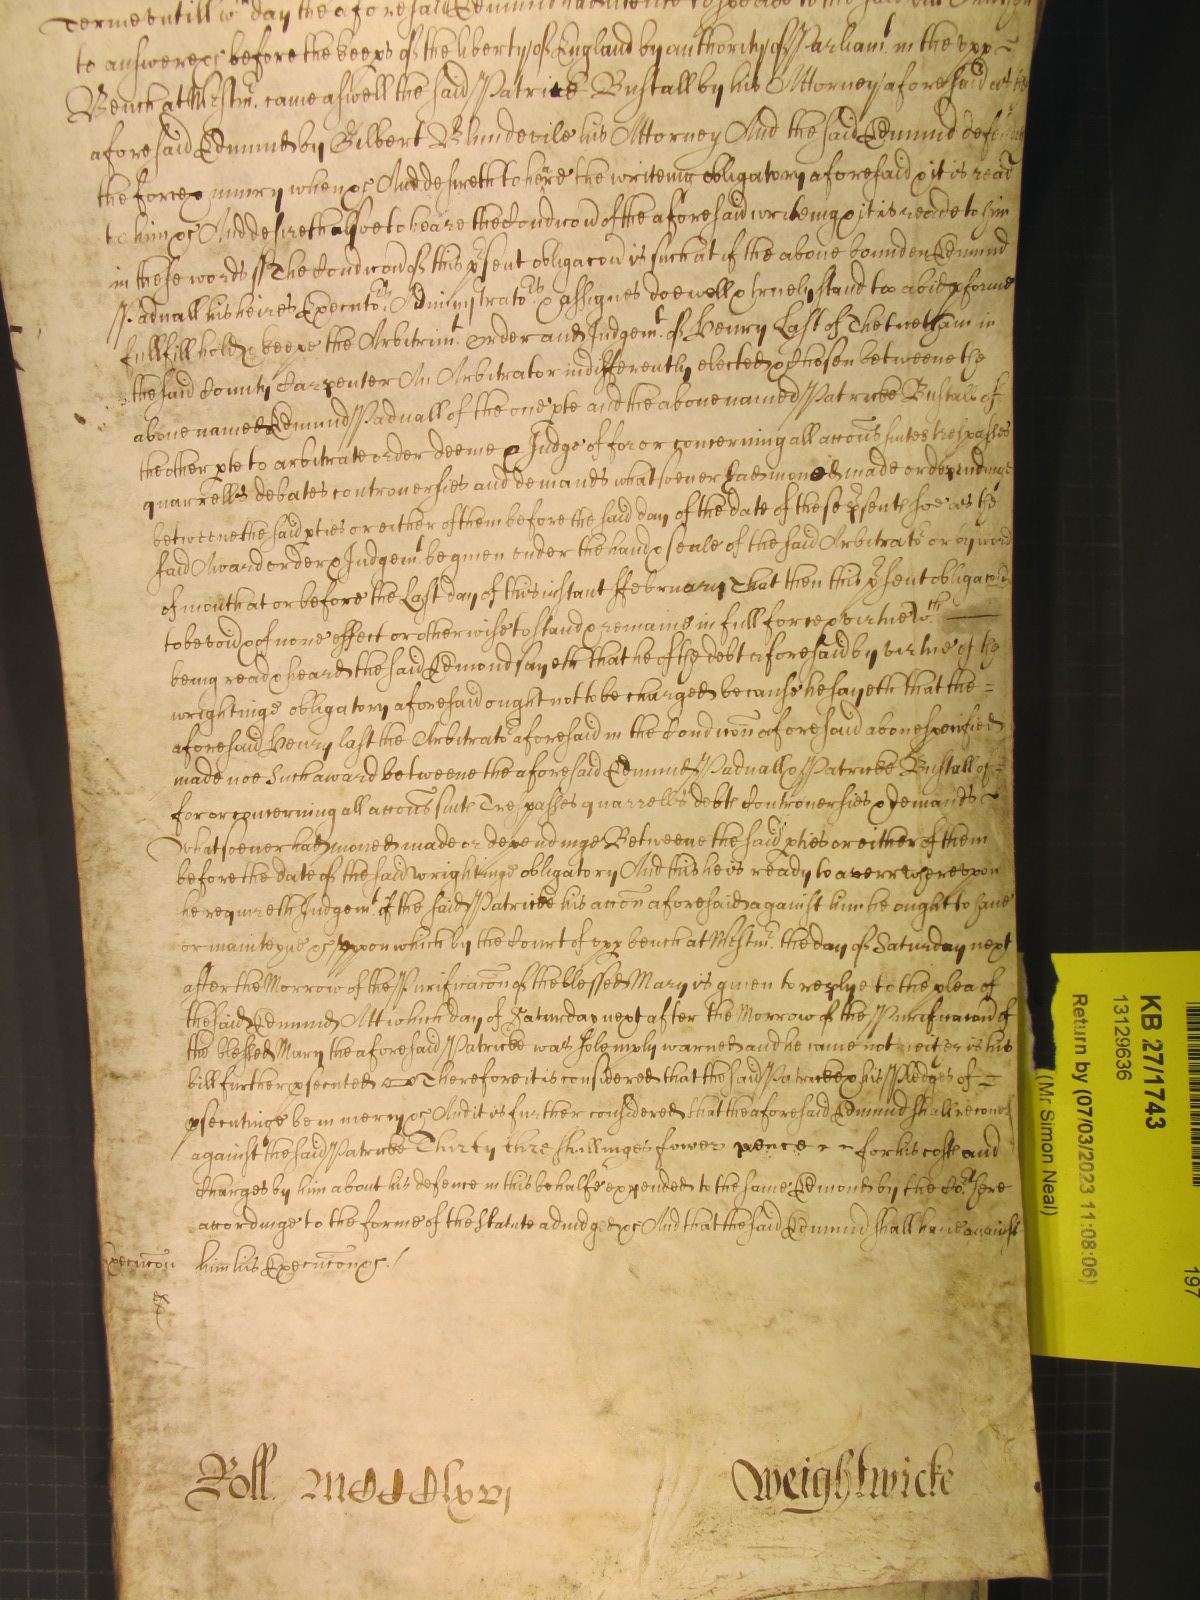 Terme untill wch day the aforesaid Edmund had licence to
to answere &c before the keeps of the liberty of England by authority of Parliamt in the upp
Bench at Westmr came aswell the said Patricke Bustall by his Attorney aforesaid as the
aforesaid Edmund by Gilbert Blundevile his Attorney And the said Edmund defends
the force & iniury when &c And desireth to heare the writeing obligatory aforesaid & it is read
to him &c And desireth alsoe to heare the Condicon of the aforesaid writeing & it is reade to him
in these words ss The Condicon of this psent obligacon is such at if the above bounden Edmund
Padnall his heires Executors Administrators & assignes doe well & truely stand too abide pforme
fullfill hold & keepe the Arbitrimt order and Judgemt of Henry Last of Thetnetham in
the said County Carpenter An Arbitrator indifferently elected & chosen betweene the
above named Edmund Padnall of the one pte and the above named Patricke Bustall of
the other pte to arbitrate order deeme & Judge of for or concerning all accons suites trespasses
quarrells debates controversies and demands whatsoever had moved made or depending
betweene the said pties or either of them before the said day of the date of these psents soe as the
said Award order & Judgemt be given under the hand & seale of the said Arbitrator or by word
of mouth at or before the Last day of this instant ffebruary That then this psent obligacon
to be void & of none effect or otherwise to stand & remaine in full force & vertue wch
being read & heard the said Edmond sayeth that he of the debt aforesaid by vertue of the
wrightinge obligatory aforesaid ought not to be charged because he sayeth that the =
aforesaid Henry last the Arbitrator aforesaid in the Condicon aforesaid above specified
made noe such award betweene the aforesaid Edmund Padnall & Patricke Bustall of =
for or concerning all accons suite Trespasses quarrells debte Controversies & demands
whatsoever had moved made or dependinge Betweene the said pties or either of them
before the date of the said wrightinge obligatory And this he is ready to averr whereupon
he requireth Judgemt if the said Patricke his accon aforesaid against him he ought to have
or mainteyne &c Uppon which by the Court of upp bench at Westmr the day of Saturday next
after the Morrow of the Purificacon of the blessed Mary is given to replye to the plea of
the said Edmund Att which day of Saturday next after the Morrow of the Purificacon of
the blessed Mary the aforesaid Patricke was solemply warned and he came not neither is his
bill further psecuted Therefore it is considered that the said Patricke & his Pledges of =
psecutinge be in mercy &c And it is further considered that the aforesaid Edmund shall recover
against the said Patricke Thirty three shillinges fower pence for his coste and
Charges by him about his defence in this behalfe expended to the same Edmond by the Cort here
accordinge to the forme of the Statute adiudged &c And that the said Edmund shall have against
Execucon him his Execucon &c
Roll MCCCClxvi
Weightwicke
KB 27/1743
13129636
Return by (07/03/2023 11:08:06)
(Mr Simon Neal)
197